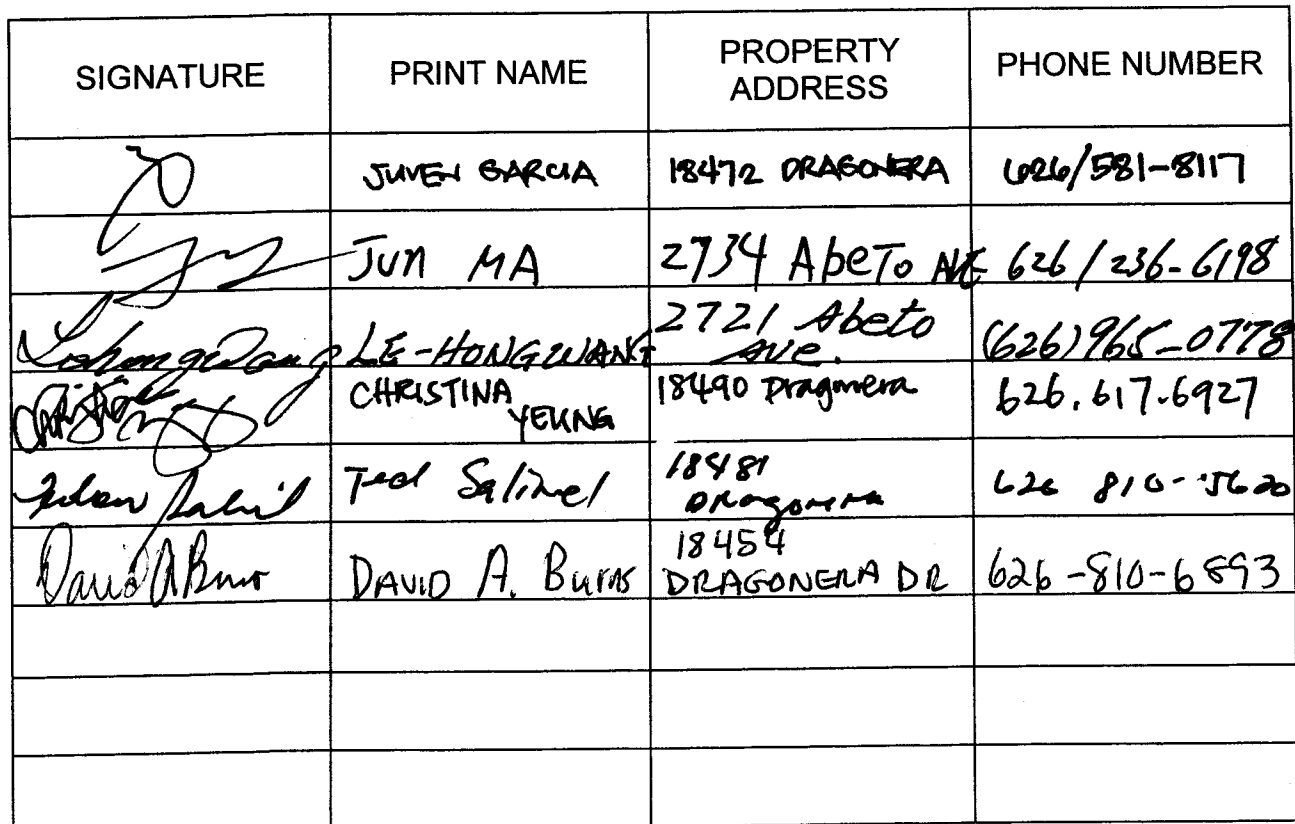 SIGNATURE PRINT NAME PROPERTY ADDRESS PHONE NUMBER
JUVEN GARCIA 18472 DRAGONERA 626/581-8117
JUN MA 2734 AbeTo AVE 626/236-6198
LE-HONG WANG 2721 Abeto Ave. (626)965-0778
CHRISTINA YEUNG 18490 Dragonera 626.617.6927
Ted 18481 Dragonera 626 810-5620
David A Burns DAVID A. Burns 18454 DRAGONERA DR 626-810-6893